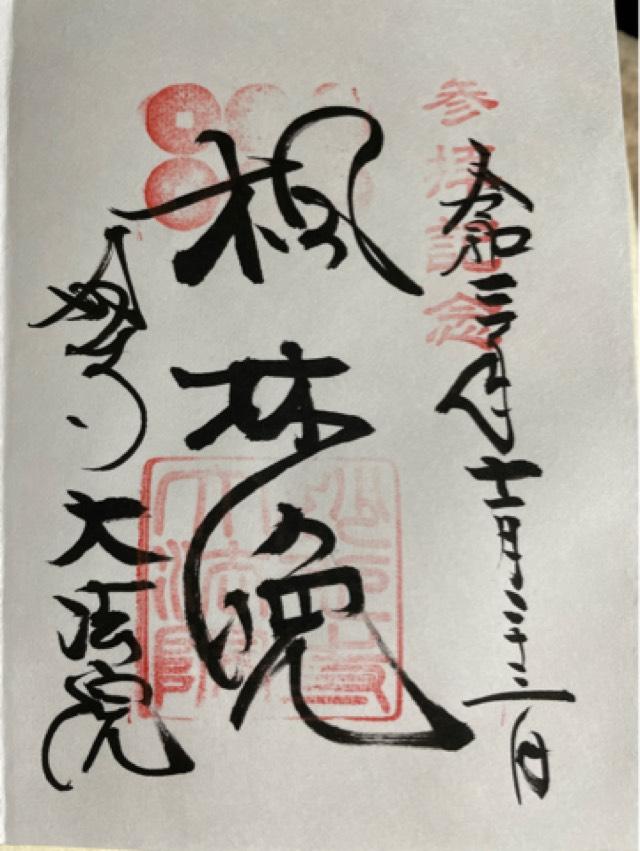 参拝記念
令和三年十一月二十二日
楓林晩
大法院